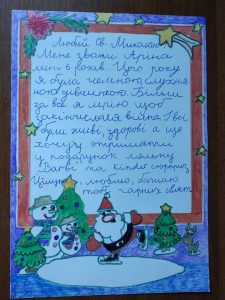 Любий Св. Миколаю
Мене звати Аріна
мені 6 років. Цього року
я була чемною, слухня-
ною дівчинкою. Більш
за всі я мрію щоб
закінчилася війна і всі
були живі здорові а ще
хочу отримати
у подарунок ляльку
Барбі та kinder сюрприз
Цілую, люблю, бажаю
тобі гарних свят